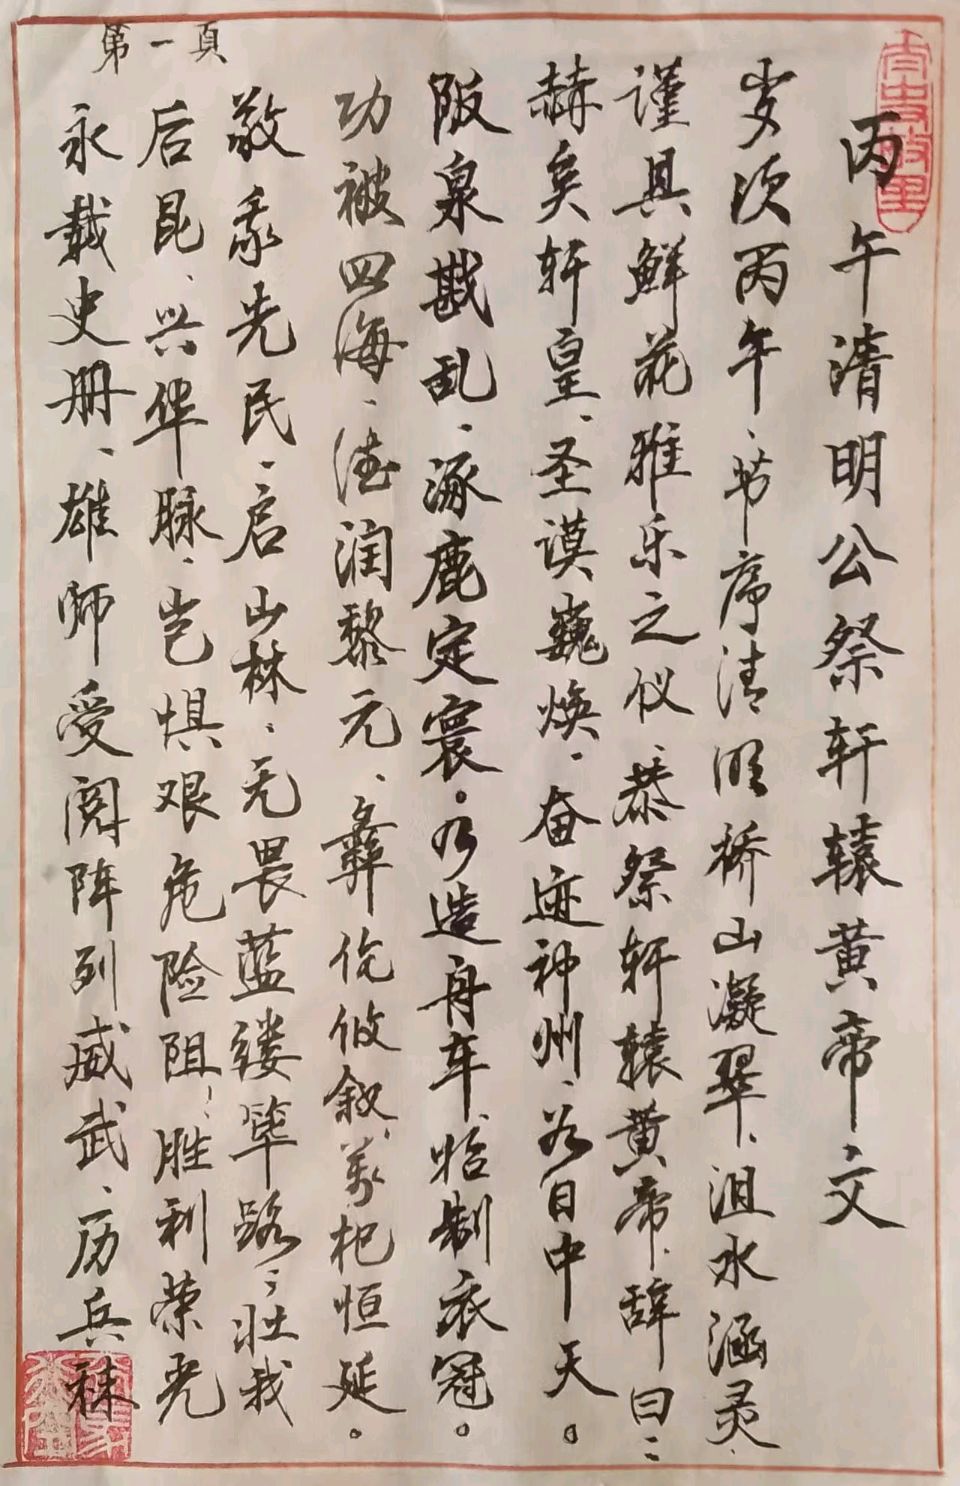 第一頁
丙午清明公祭轩辕黄帝文
岁次丙午、节序清明、桥山凝翠、沮水涵灵、
谨具鲜花雅乐之仪、恭祭轩辕黄帝、辞曰:
赫矣轩皇、圣谟巍焕、奋迹神州、若日中天。
阪泉戡乱、涿鹿定寰。乃造舟车、始制衣冠。
功被四海、德润黎元、彝伦攸叙、万祀恒延。
敬承先民、启山林、无畏蓝缕筚路、壮我
后昆、兴华脉、岂惧艰危险阻、胜利荣光
永载史册、雄师受阅阵列威武、厉兵秣